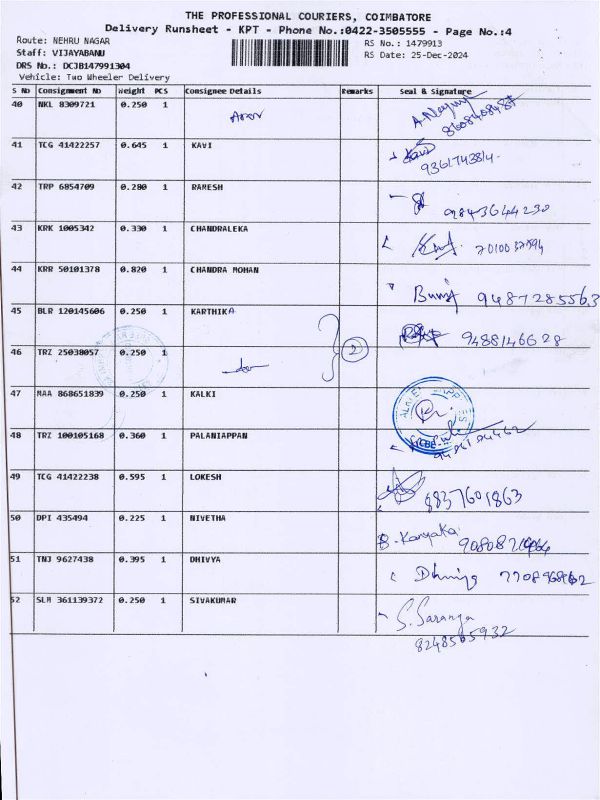 THE PROFESSIONAL COURIERS, COIMBATORE
Delivery Runsheet - KPT - Phone No.:0422-3505555 - Page No.:4
Route: NEHRU NAGAR
RS No.: 1479913
Staff: VIJAYABANU
RS Date: 25-Dec-2024
DRS No.: DCJB147991304
Vehicle: Two Wheeler Delivery
S No Consignment No Weight PCS Consignee Details Remarks Seal & Signature
40 NKL 8309721 0.250 1
8608408487
41 TCG 41422257 0.645 1 KAVI Kavi
9361743814
42 TRP 6854709 0.280 1 RAMESH
9843644230
43 KRK 1005342 0.330 1 CHANDRALEKA
44 KRR 50101378 0.820 1 CHANDRA MOHAN
9487285563
45 BLR 120145606 0.250 1 KARTHIKA
9488146628
46 TRZ 25038057 0.250 1
2
47 MAA 868651839 0.250 1 KALKI
48 TRZ 100105168 0.360 1 PALANIAPPAN
49 TCG 41422238 0.595 1 LOKESH
8837601863
50 DPI 435494 0.225 1 NIVETHA
B. Kanyaka
51 TNJ 9627438 0.395 1 DHIVYA
52 SLM 361139372 0.250 1 SIVAKUMAR
S. Saranya
8248565932